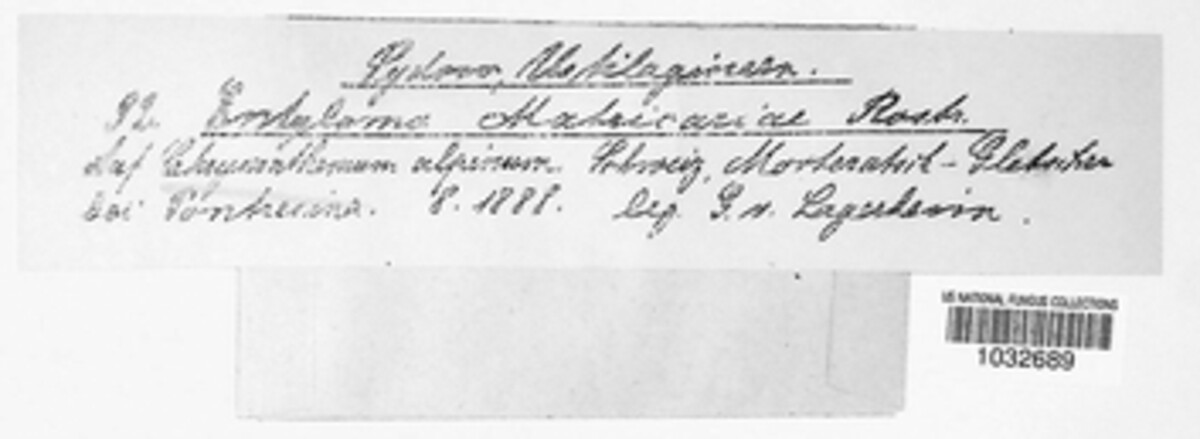 Sydow, Ustilagineen.
92. Entyloma Matricariae Rostr.
Auf Chrysanthemum alpinum. Schweiz, Morteratsch-Gletscher
bei Pontresina. 8. 1888. leg. G. v. Lagerheim.
US NATIONAL FUNGUS COLLECTIONS
1032689